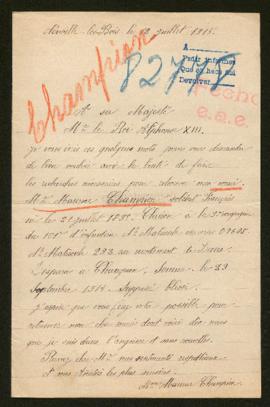 Neuville les Bois le 12 juillet 1915.
Champion
82718
A
Pedir informes
Que se hace así
Devolver
Fecho
e.a.e.
A sa Majesté
Mr le Roi Alphonse XIII.
je vous écris ces quelques mots pour vous demander
de bien vouloir avoir la bonté de faire
les recherches nécessaires pour retrouver mon mari
Mr Maurice Champion soldat Français
né le 21 juillet 1891. Classe à la 3e compagnie
du 101e d'infanterie No Matricule au corps 09605
No Matricule 293 au recrutement de Dreux
Disparu à Champien, Somme le 29
Septembre 1914. Supposé blessé
J'espère que vous ferez votre possible pour
retrouver mon cher mari dont voici dix mois
que je suis dans l'angoisse et sans nouvelles.
Recevez cher Mr mes sentiments respectueux
et mes amitiés les plus sincères.
Mme Maurice Champion